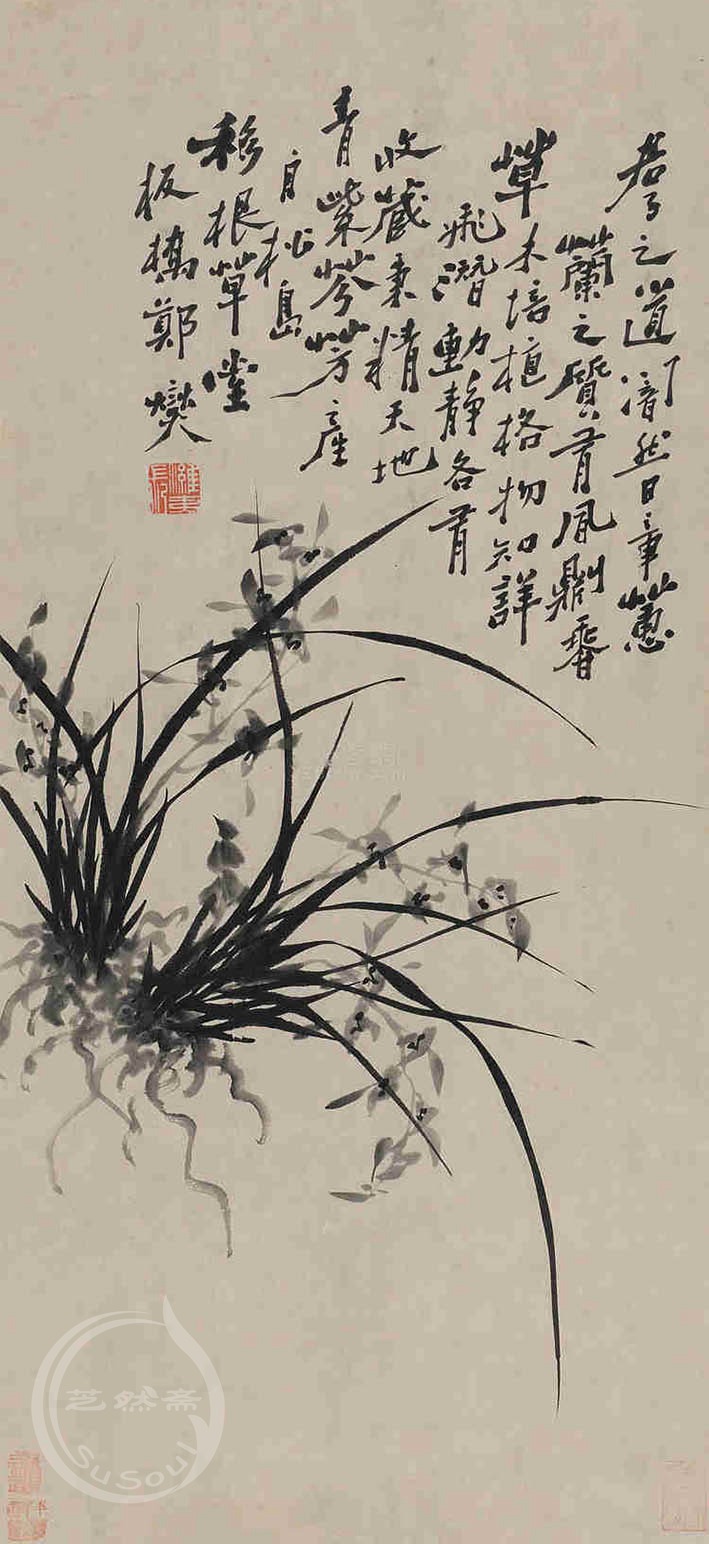 君子之道闇然日章蕙
蘭之質有風則香
草木培植格物知詳
飛潛動靜各有
收藏秉精天地
青紫芬芳產
自松島
移根草堂
板橋鄭燮
芝然斋
SuSoul